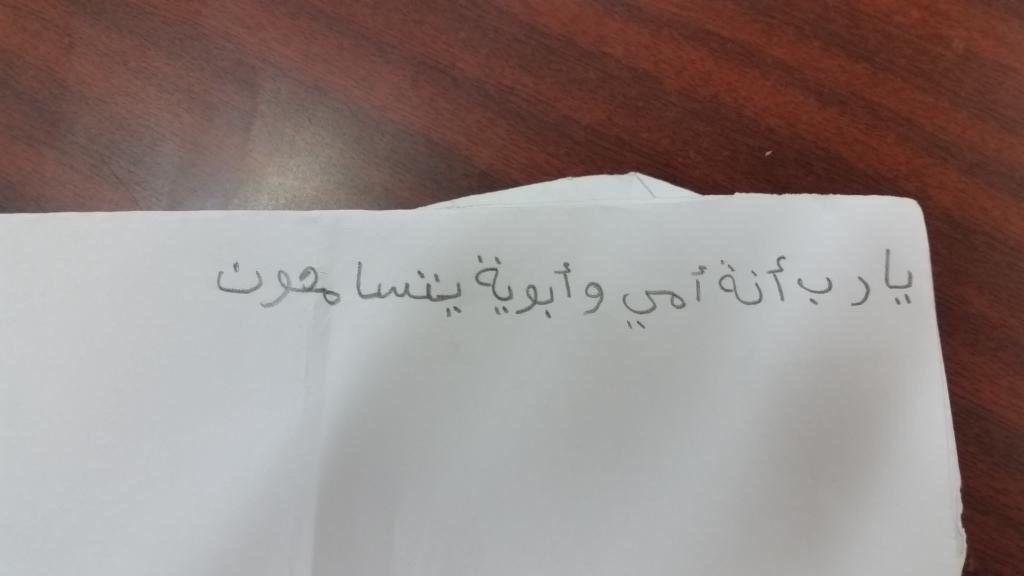 يا رب أنة أمي وأبوية يتسامحون